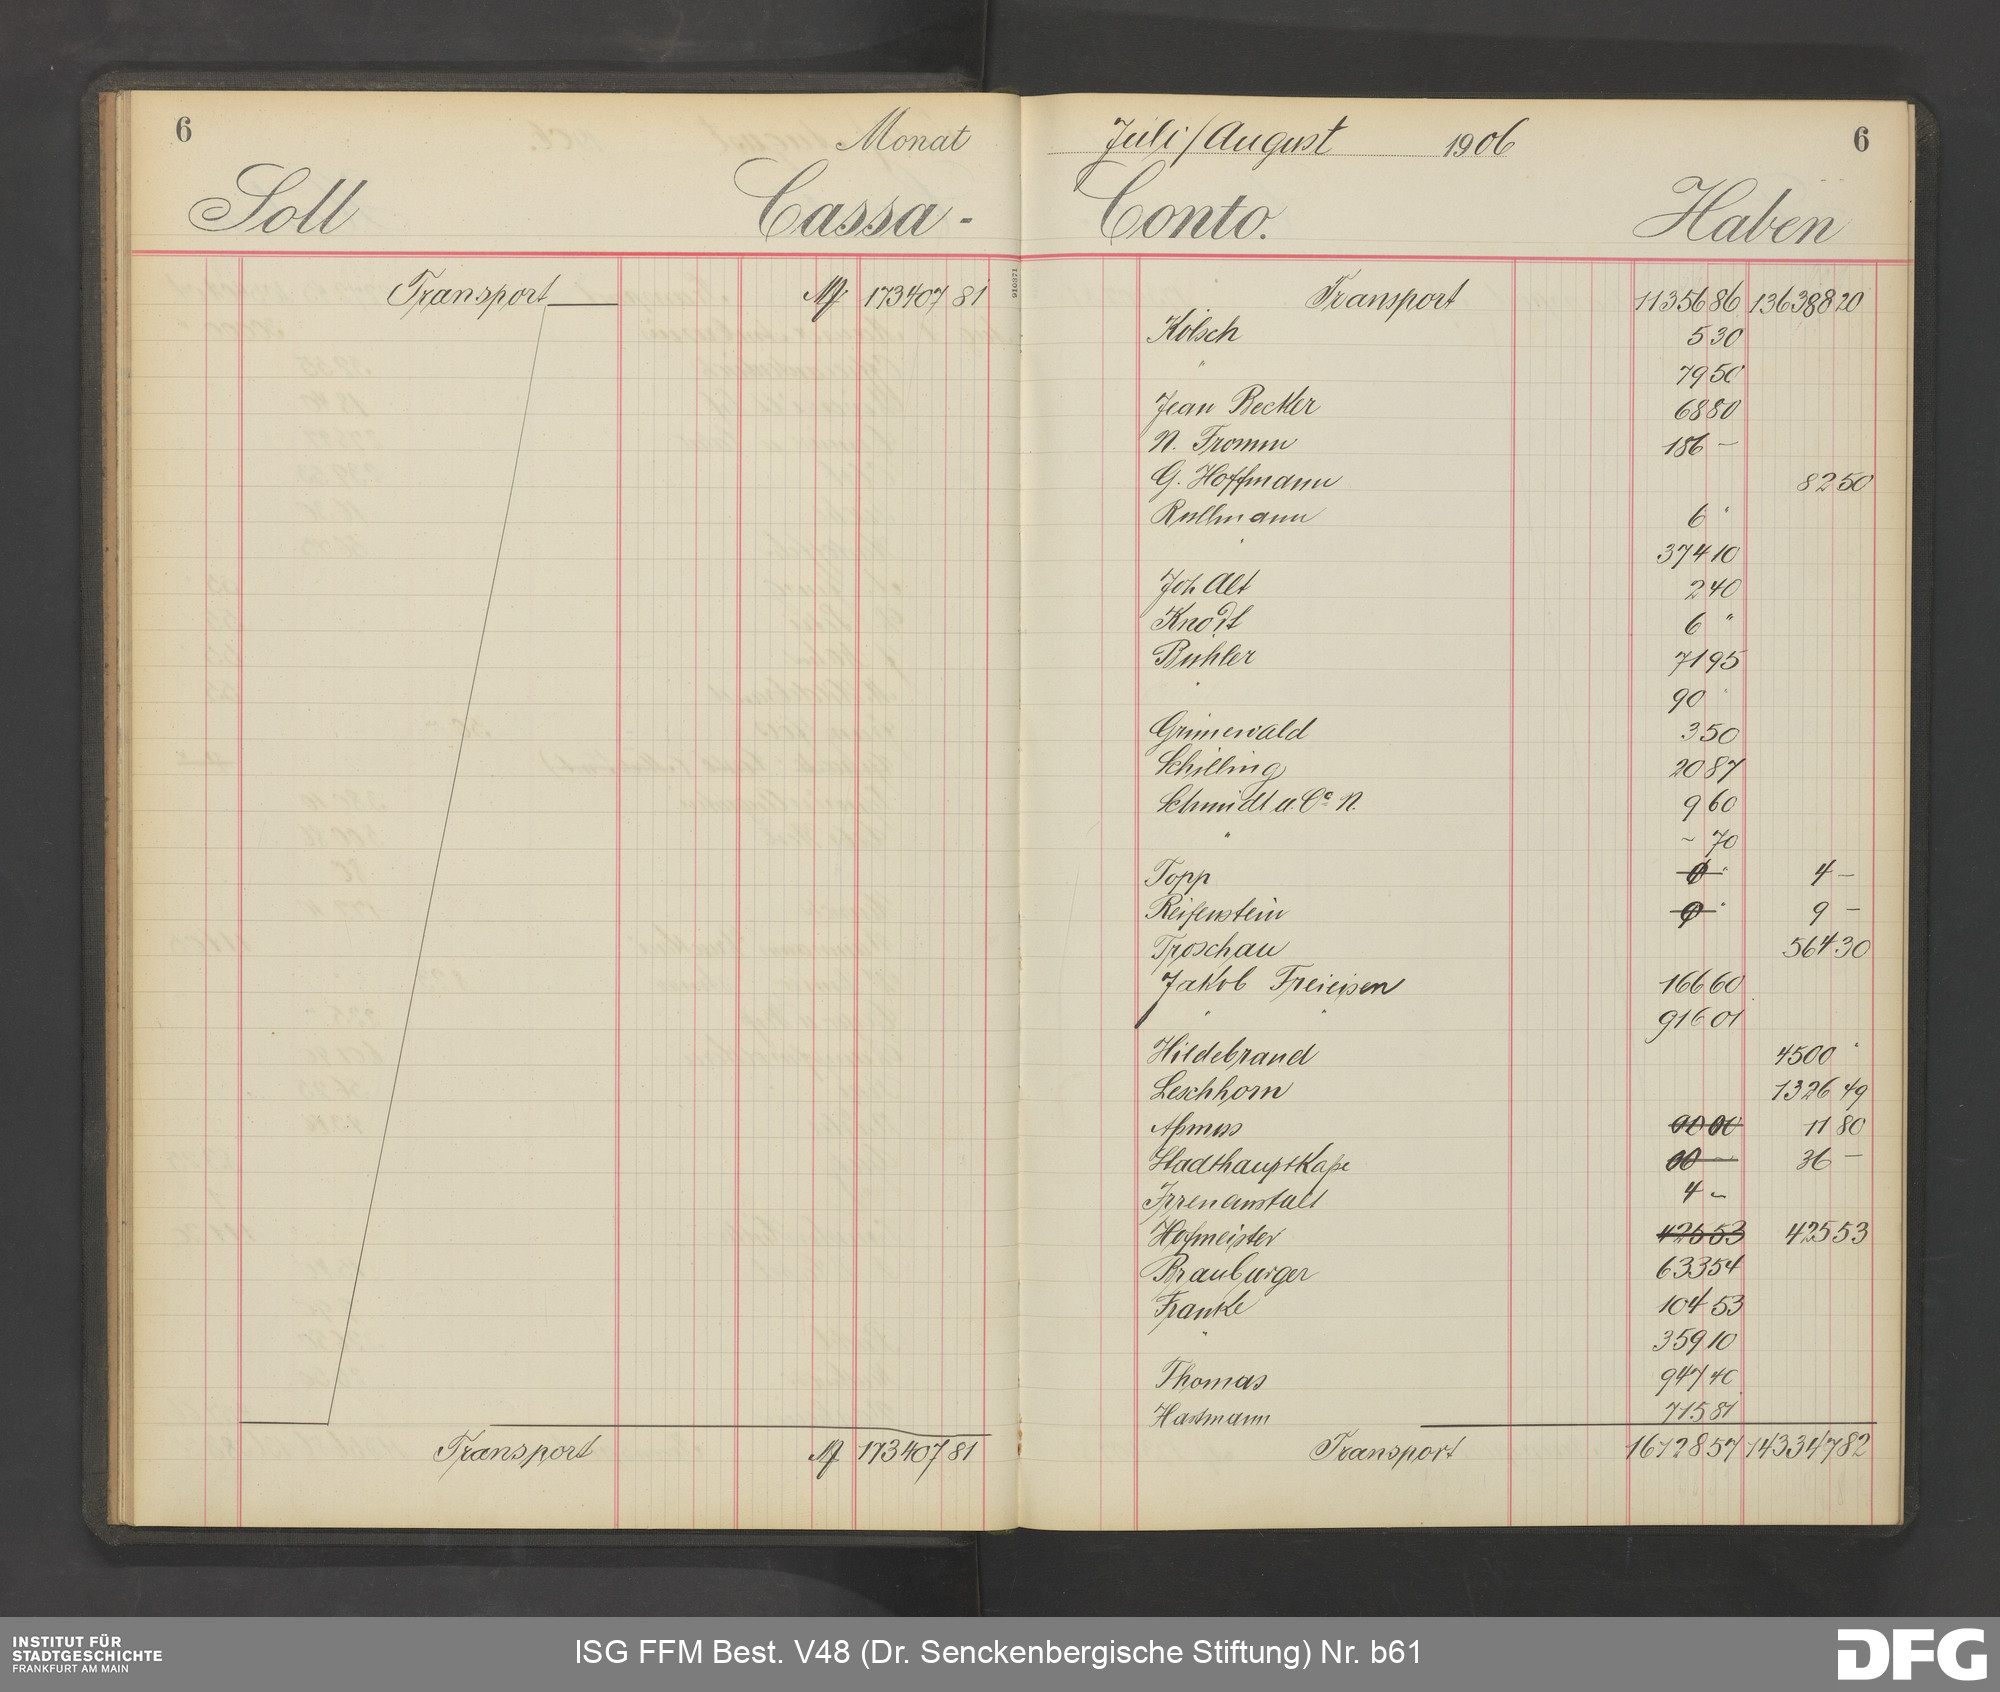 6
Monat
Soll
Cassa-
Transport M 173407 81
Transport M 173407 81
910371
Juli/August 1906
6
Conto.
Haben
Transport 11356 86 136388 20
Kölsch 5 30
" 79 50
Jean Becker 68 80
N. Fromm 186 –
G. Hoffmann 82 50
Rullmann 6 "
" 374 10
Joh Alt 2 40
Knodt 6 "
Buhler 71 95
" 90 "
Grünewald 3 50
Schilling 20 87
Schmidt u. Co N. 9 60
" – 70
Topp 4 –
Reifenstein 9 –
Troschau 564 30
Jakob Freieisen 166 60
" " 916 01
Hildebrand 4500 "
Leschhorn 1326 49
Aßmus 11 80
Stadthauptkaße 36 –
Irrenanstalt 4 –
Hofmeister 425 53 425 53
Brauburger 633 54
Franke 104 53
" 359 10
Thomas 947 40
Hartmann 715 81
Transport 16728 57 143347 82
INSTITUT FÜR
STADTGESCHICHTE
FRANKFURT AM MAIN
ISG FFM Best. V48 (Dr. Senckenbergische Stiftung) Nr. b61
DFG